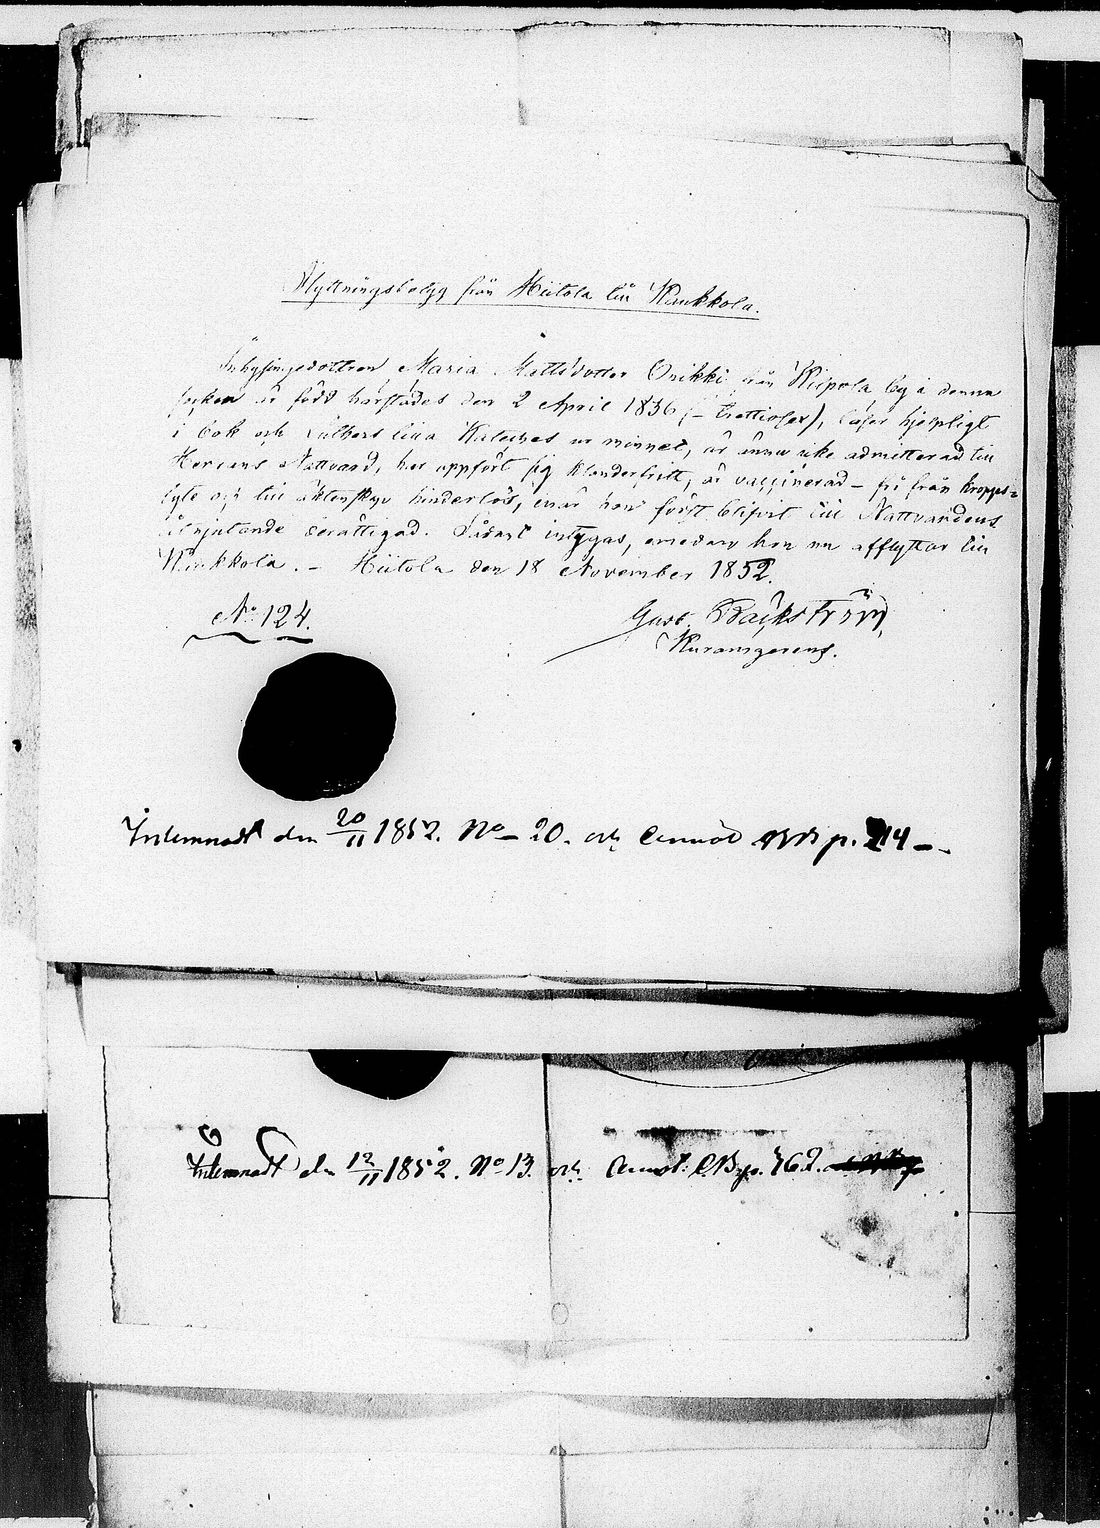 Flyttningsbetyg från Hiitola till Kaukkola.
Inhysingedottren Maria Mattsdotter Onikki från Kiipola by i denna
socken är född härstädes den 2 April 1836 (- trettiosex), läser hjelpligt
i bok och Luthers lilla Kateches ur minnet, är ännu icke admitterad till
Herrans Nattvard, har uppfört sig klanderfritt, är vaccinerad - fri från kropps=
lyte och till äktenskap hinderlös, enär hon först blifvit till Nattvardens
åtnjutande berättigad. Sådant intygas, emedan hon nu afflyttar till
Kaukkola. - Hiitola den 18 November 1852.
No 124.
Gust. Bäckström,
Inlemnadt den 20/11 1852. No - 20. och Annot p. 214 -
Inlemnadt den 12/11 1852. No 13. och Annot. CB p. 762.